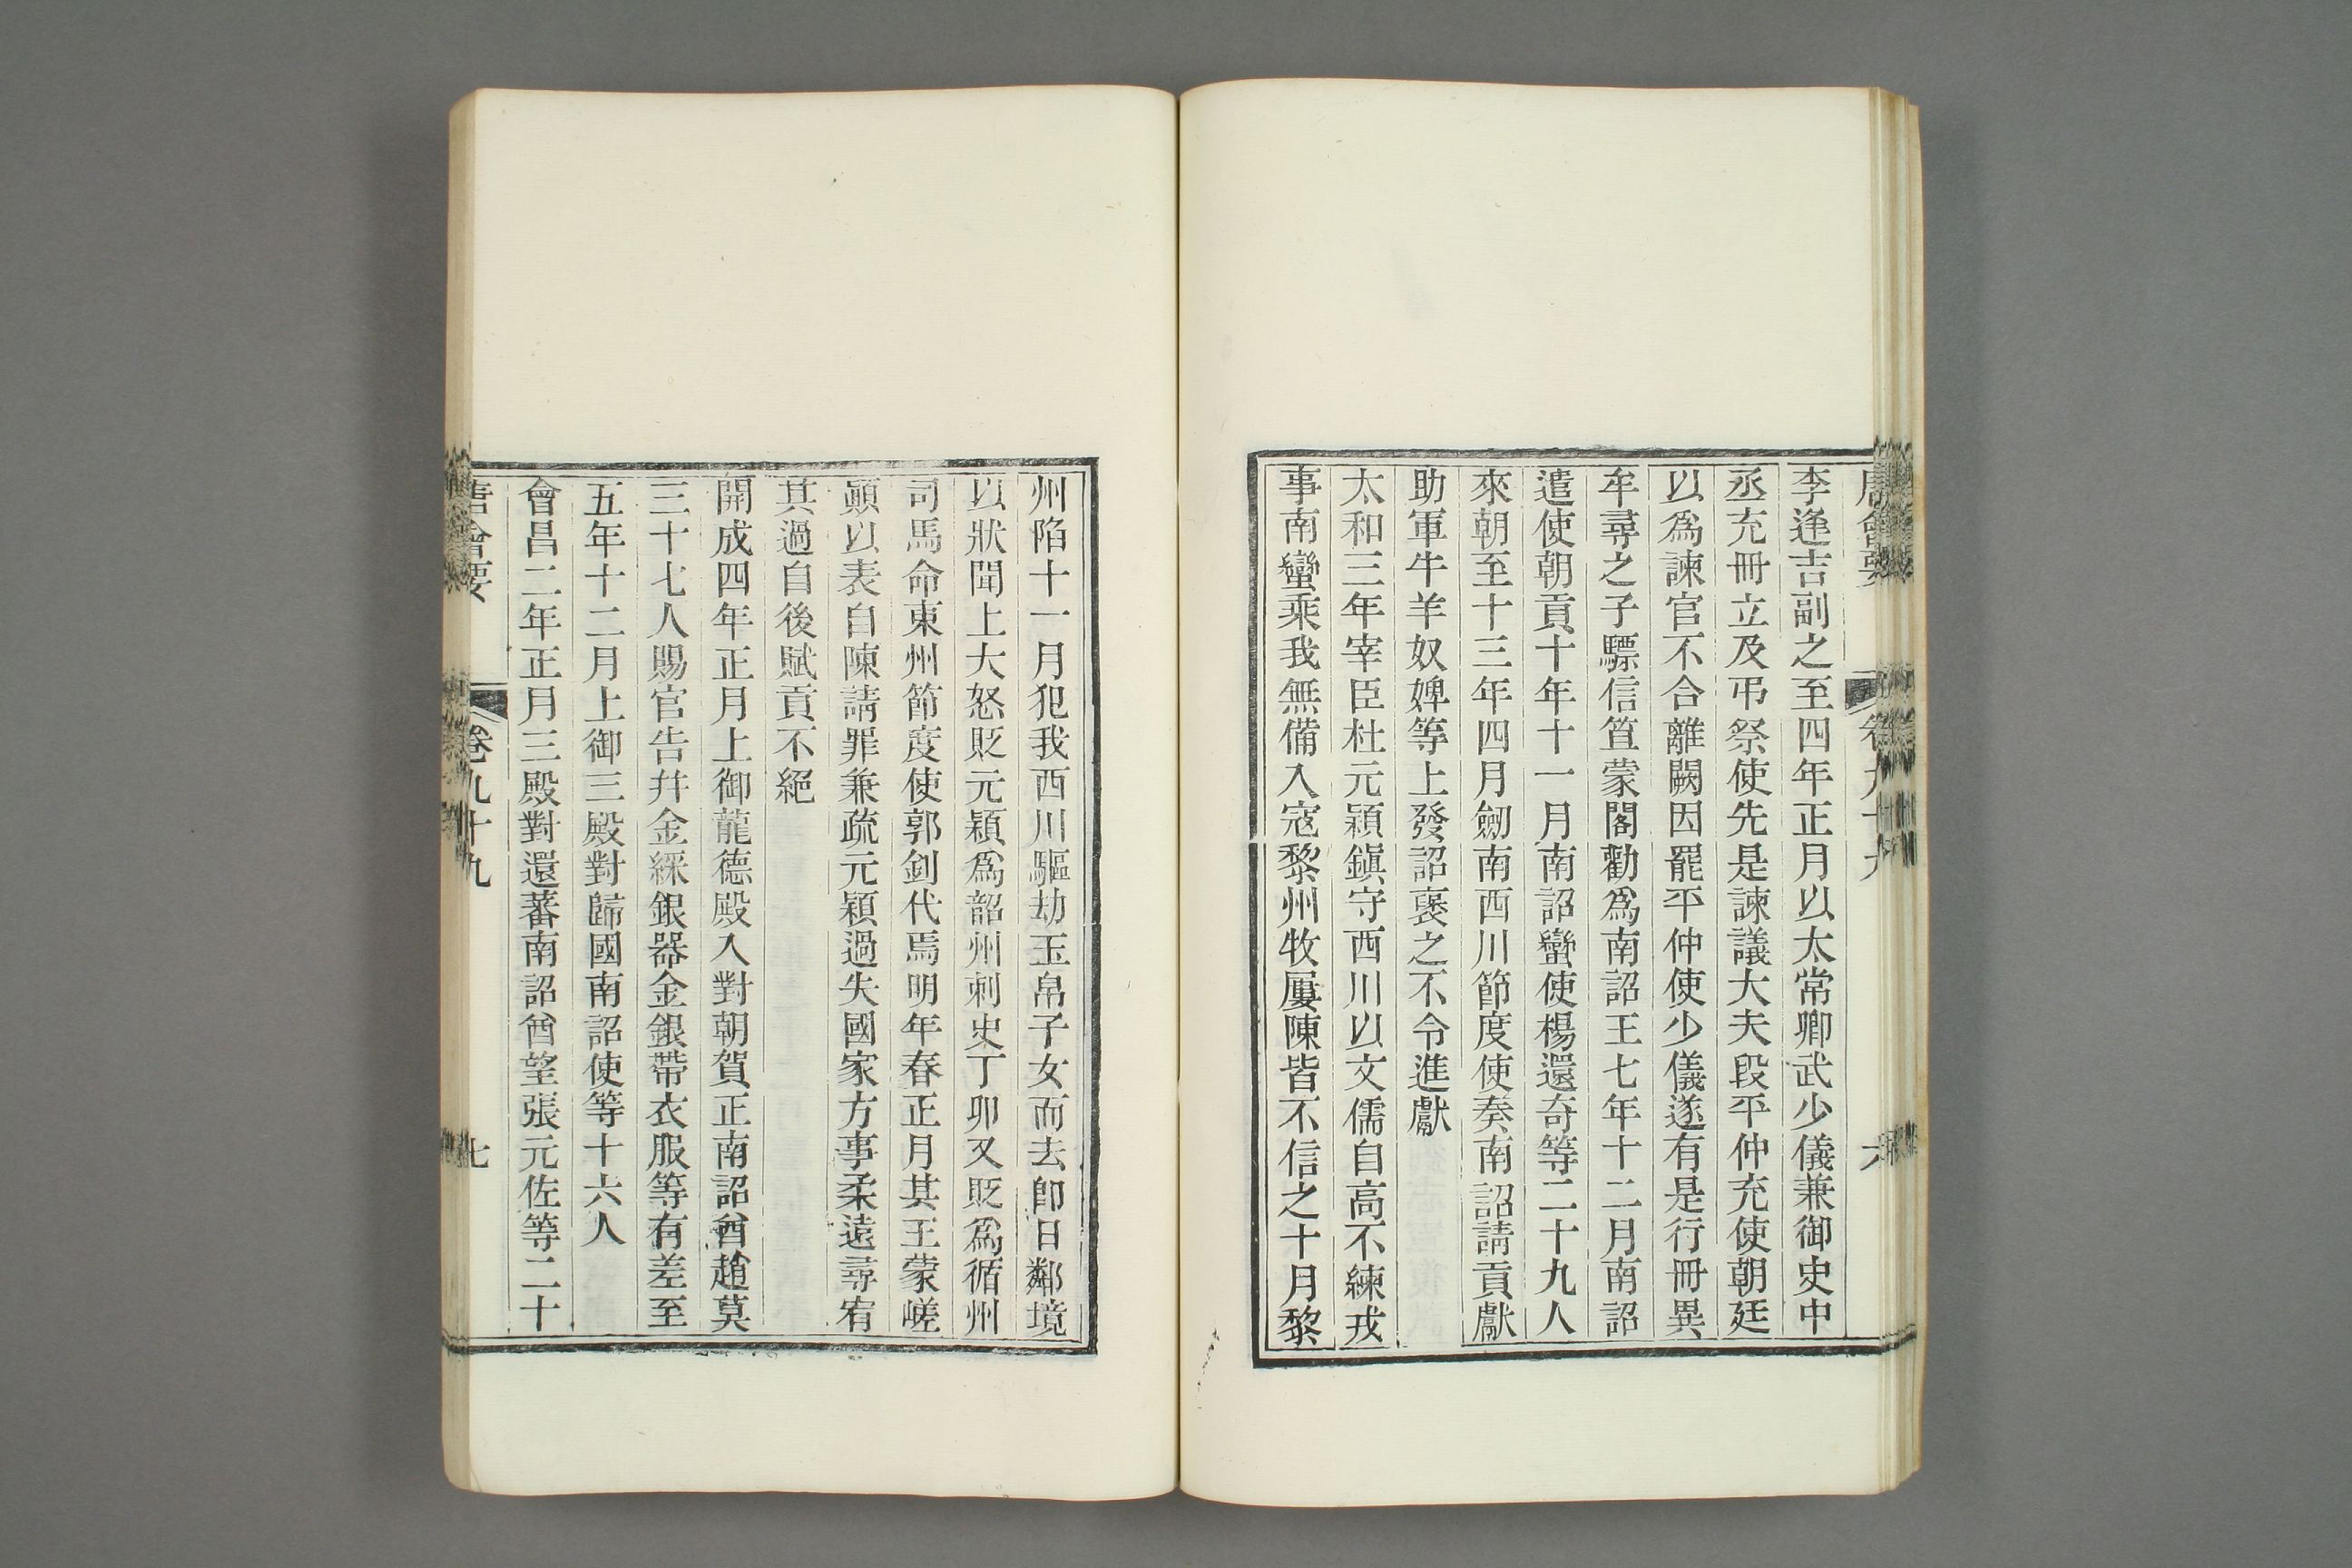 唐會要 卷九十九 六
李逢吉副之至四年正月以太常卿武少儀兼御史中
丞充冊立及弔祭使先是諫議大夫段平仲充使朝廷
以爲諫官不合離闕因罷平仲使少儀遂有是行冊異
牟尋之子驃信苴蒙閣勸爲南詔王七年十二月南詔
遣使朝貢十年十一月南詔蠻使楊還奇等二十九人
來朝至十三年四月劒南西川節度使奏南詔請貢獻
助軍牛羊奴婢等上發詔襃之不令進獻
太和三年宰臣杜元穎鎮守西川以文儒自高不練戎
事南蠻乘我無備入寇黎州牧屢陳皆不信之十月黎
州陷十一月犯我西川驅劫玉帛子女而去卽日鄰境
以狀聞上大怒貶元穎爲韶州刺史丁卯又貶爲循州
司馬命東州節度使郭釗代焉明年春正月其王蒙嵯
顚以表自陳請罪兼疏元穎過失國家方事柔遠尋宥
其過自後賦貢不絕
開成四年正月上御龍德殿入對朝賀正南詔酋趙莫
三十七人賜官告幷金綵銀器金銀帶衣服等有差至
五年十二月上御三殿對歸國南詔使等十六人
會昌二年正月三殿對還蕃南詔酋望張元佐等二十
唐會要 卷九十九 七